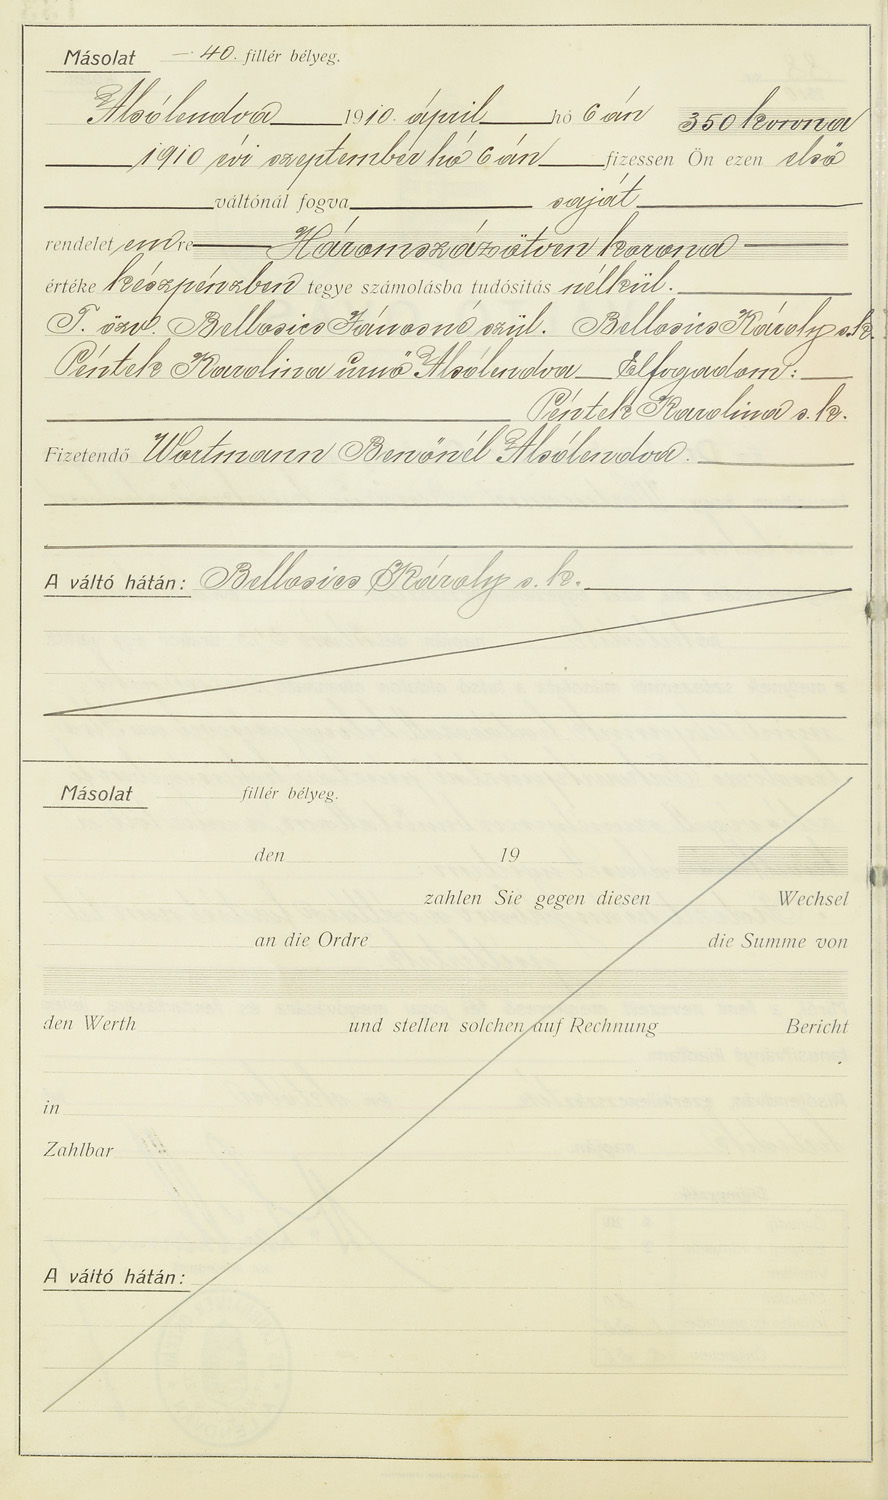 Másolat — 40. fillér bélyeg.
Alsólendva 1910. április hó 6 án 350 korona
1910 évi szeptember hó 6 án fizessen Ön ezen első
váltónál fogva saját
rendelet emre Háromszázötven korona
értéke készpénzben tegye számolásba tudósítás nélkül.
T. özv. Bellosics Jánosné szül. Bellosics Károly s.k.
Péntek Karolina úrnő Alsólendva Elfogadom:
Péntek Karolina s. k.
Fizetendő Wortmann Benőnél Alsólendva.
A váltó hátán: Bellosics Károly s. k.
Másolat fillér bélyeg.
den 19
zahlen Sie gegen diesen Wechsel
an die Ordre die Summe von
den Werth und stellen solchen auf Rechnung Bericht
in
Zahlbar
A váltó hátán: